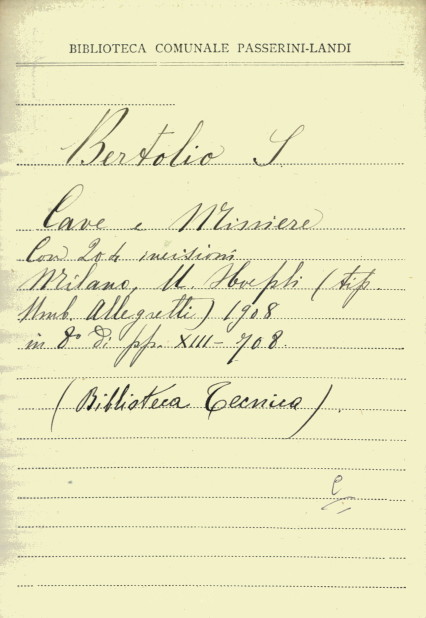 BIBLIOTECA COMUNALE PASSERINI-LANDI
Bertolio S.
Cave e Miniere
Con 204 incisioni
Milano, U. Hoepli (tip.
Umb. Allegretti) 1908
in 8° di pp. XIII-708.
(Biblioteca Tecnica).
e